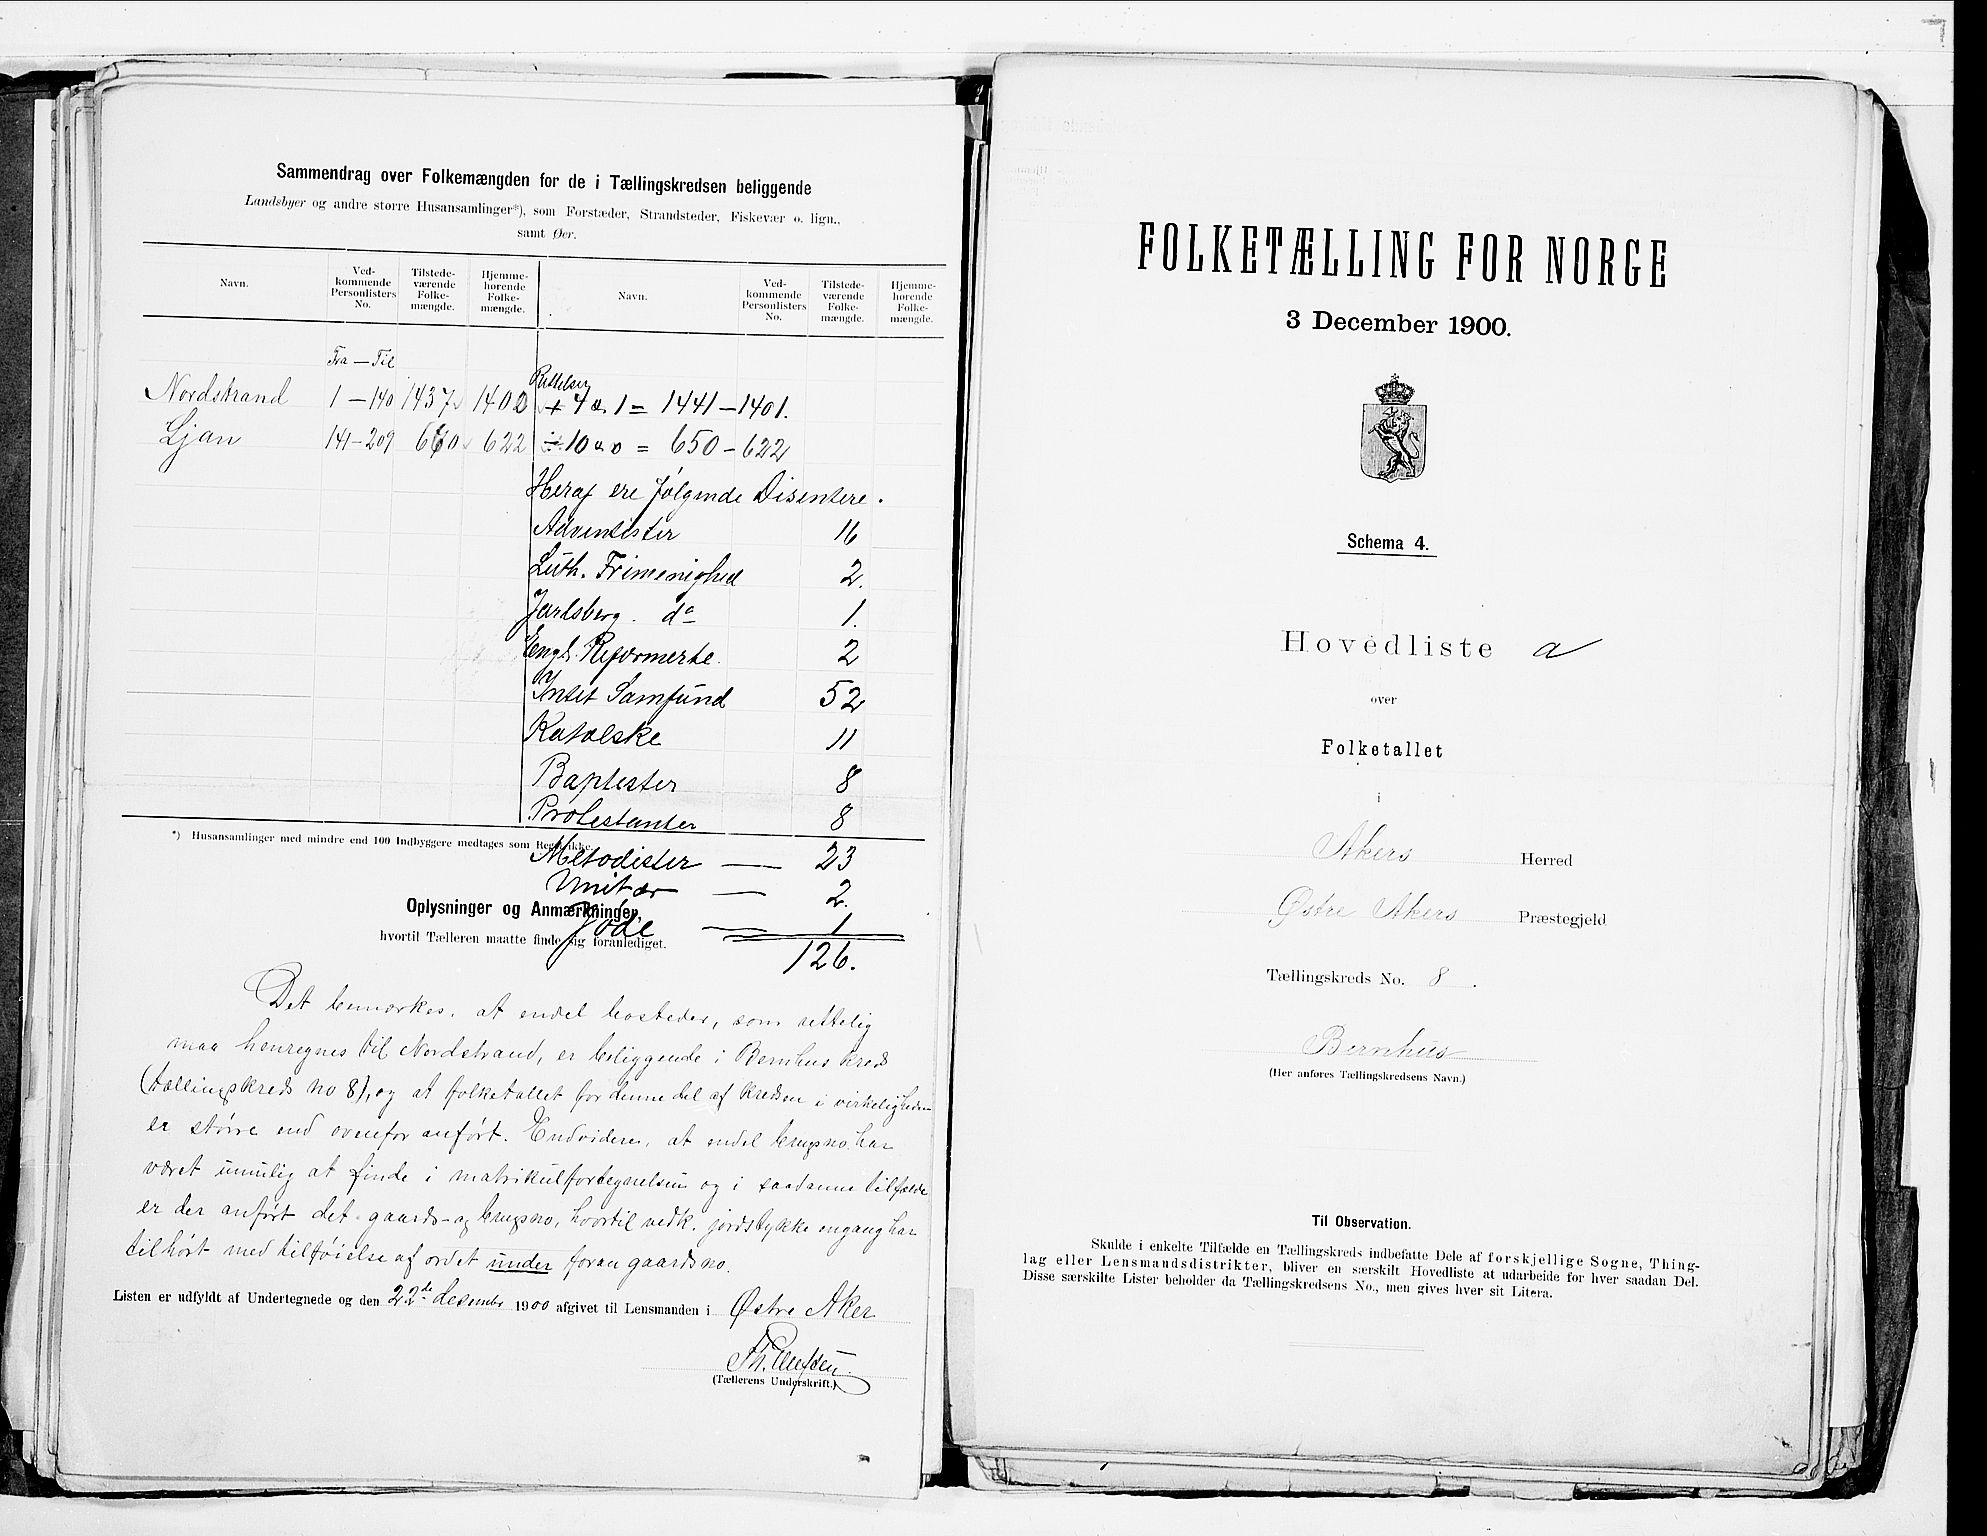 Sammendrag over Folkemængden for de i Tællingskredsen beliggende
Landsbyer og andre større Husansamlinger*), som Forstæder, Strandsteder, Fiskevær o. lign.,
samt Øer.
Navn. Ved-kommende Personlisters No. Tilstede-værende Folke-mængde. Hjemme-hørende Folke-mængde. Navn. Ved-kommende Personlisters No. Tilstede-værende Folke-mængde. Hjemme-hørende Folke-mængde.
Fra — Til
Rettelser
Nordstrand 1 — 140 1437 1402 + 4 1 = 1441 — 1401.
Ljan 141-209 660 622 ÷ 10 o = 650 - 622
Heraf ere følgende Disentere.
Adventister 16
Luth. Frimenighed 2.
Jarlsberg. do 1.
Engl. Reformerte. 2
Intet Samfund 52
Katolske 11
Baptister 8
Protestanter 8
*) Husansamlinger med mindre end 100 Indbyggere medtages som Regel ikke.
Metodister — 23
Unitar — 2.
Oplysninger og Anmærkninger,
Jøde — 1
hvortil Tælleren maatte finde sig foranlediget.
126.
Det bemærkes, at endel bosteder, som rettelig
maa henregnes til Nordstrand, er beliggende i Bernhus kreds
(tællingskreds no 8), og at folketallet for denne del af kredsen i virkeligheden
er større end ovenfor anført. Endvidere, at endel brugsno. har
været umulig at finde i matrikulfortegnelsen og i saadanne tilfælde
er der anført det gaards- og brugsno, hvortil vedk. jordstykke engang har
tilhørt med tilføielse af ordet under foran gaardsno.
Listen er udfyldt af Undertegnede og den 22de desember 1900 afgivet til Lensmanden i Østre Aker
Th.
(Tællerens Underskrift.)
FOLKETÆLLING FOR NORGE
3 December 1900.
Schema 4.
Hovedliste a
over
Folketallet
i
Akers Herred
Østre Akers Præstegjeld
Tællingskreds No. 8.
Bernhus
(Her anføres Tællingskredsens Navn.)
Til Observation.
Skulde i enkelte Tilfælde en Tællingskreds indbefatte Dele af forskjellige Sogne, Thing-
lag eller Lensmandsdistrikter, bliver en særskilt Hovedliste at udarbeide for hver saadan Del.
Disse særskilte Lister beholder da Tællingskredsens No., men gives hver sit Litera.